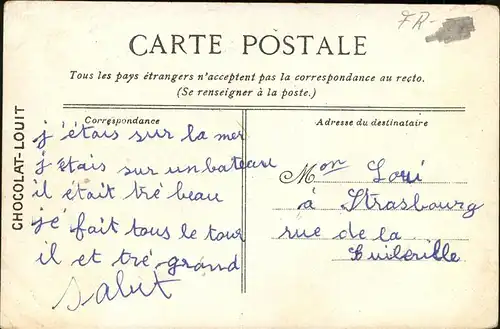 FR-
CARTE POSTALE
Tous les pays étrangers n'acceptent pas la correspondance au recto.
(Se renseigner à la poste.)
CHOCOLAT-LOUIT
Correspondance
j'étais sur la mer
j'étais sur un bateau
il était tré beau
j'é fait tous le tour
il et tré grand
salut
Adresse du destinataire
Mon Lori
à Strasbourg
rue de la